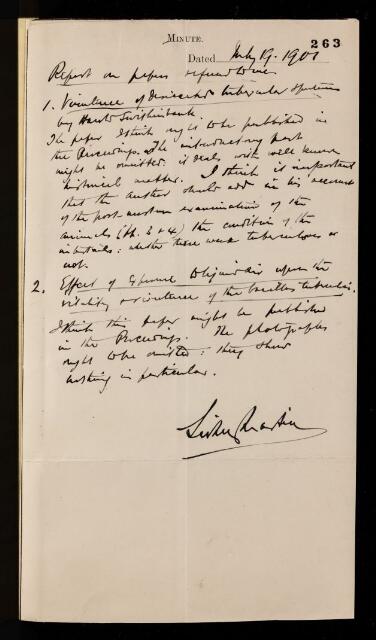 MINUTE.
263
Dated July 19. 1900
Report on papers referred to me
1. Virulence of Desiccated tubercular sputum
by Harold Swithinbank.
The paper I think ought to be published in
the Proceedings. The introductory part
might be omitted: it deals with well known
historical matter. I think it important
that the author should add in his account
of the post-mortem examination of the
animals (pp. 3 & 4) the condition of the
intestines: whether these were tuberculous or
not.
2. Effect of Exposure to liquid air upon the
vitality & virulence of the bacillus tuberculosis.
I think this paper might be published
in the Proceedings. The photographs
ought to be omitted: they show
nothing in particular.
Sidney Martin